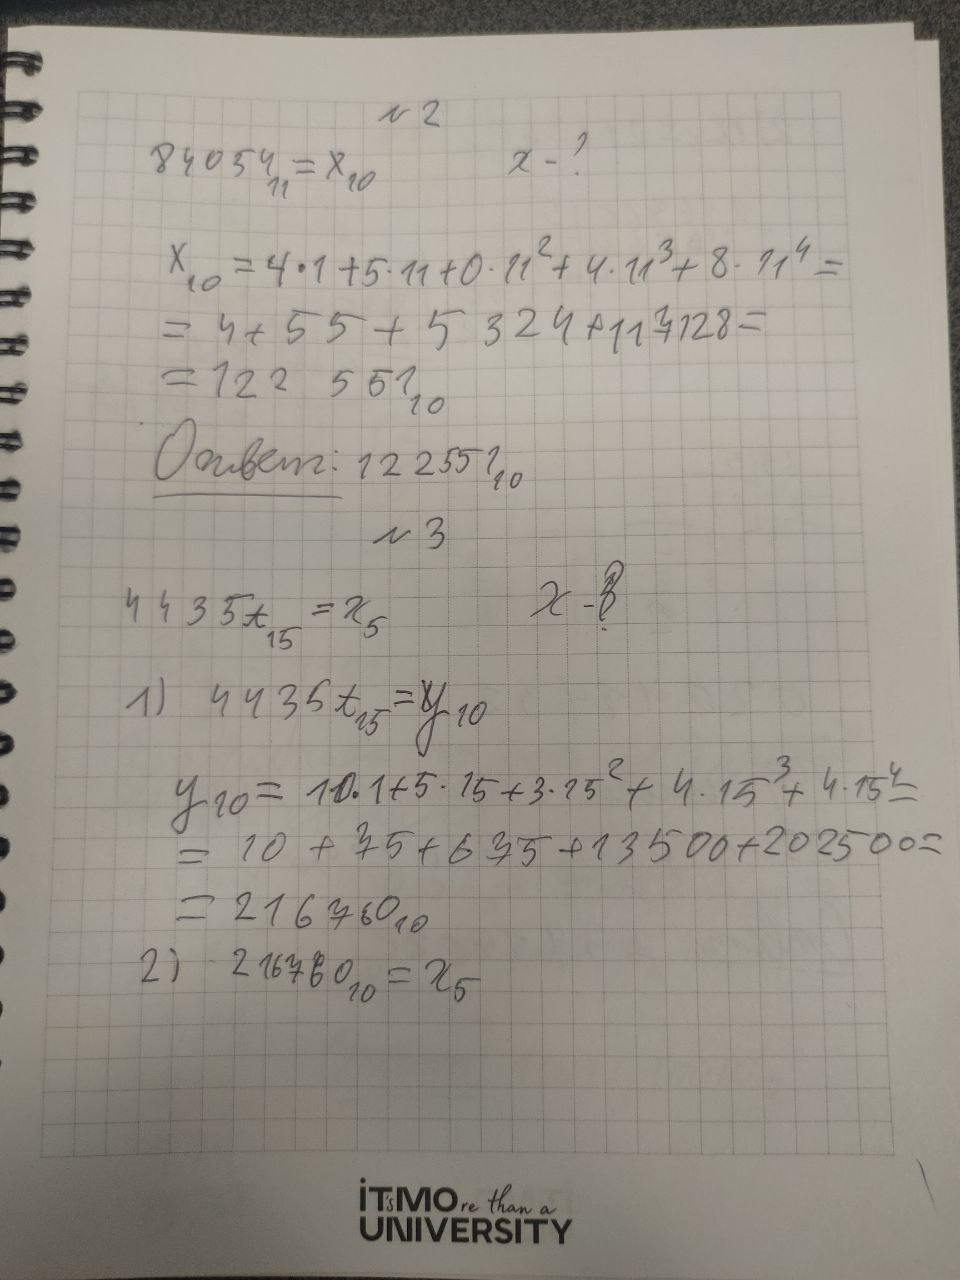 №2
84054₁₁ = x₁₀ x - ?
x₁₀ = 4·1+5·11+0·11²+4·11³+8·11⁴=
= 4+55+5 324+117128=
=122 511₁₀
Ответ: 122511₁₀
№3
4435A₁₅ = x₅ x - ?
1) 4435A₁₅ = y₁₀
y₁₀ = 10·1+5·15+3·15²+4·15³+4·15⁴=
= 10+75+675+13500+202500=
= 216760₁₀
2) 216760₁₀ = x₅
iT'sMOre than a
UNIVERSITY